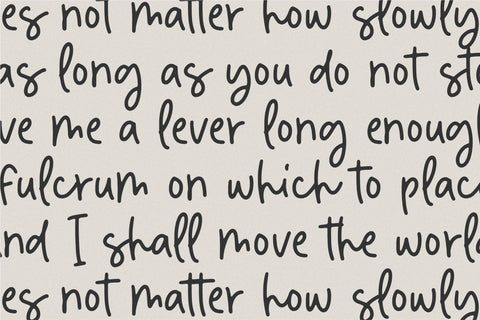 es not matter how slowly
as long as you do not sto
ve me a lever long enoug
fulcrum on which to plac
nd I shall move the worl
es not matter how slowly